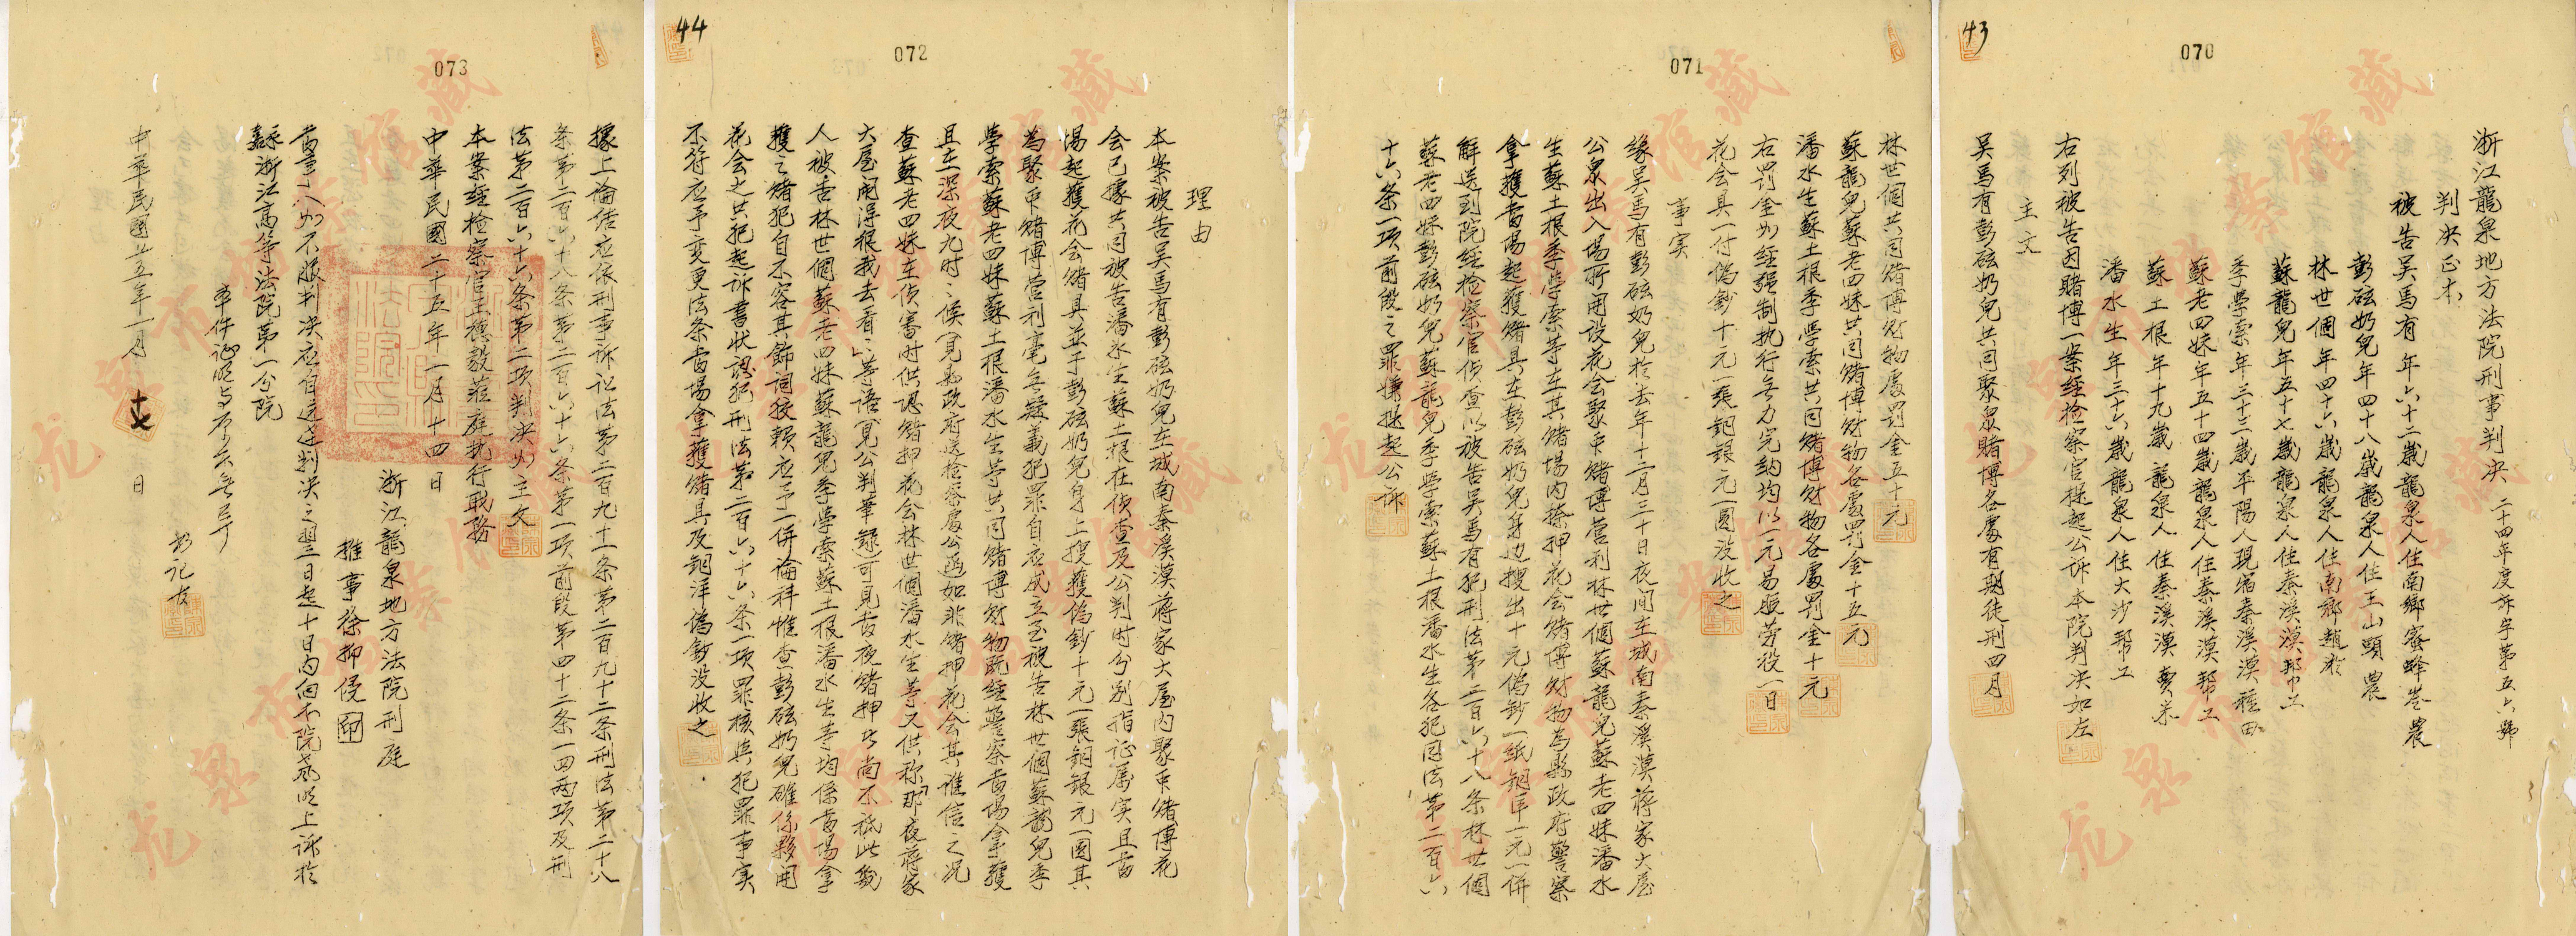 43
070
浙江龍泉地方法院刑事判決 二十四年度訴字第五六號
判決正本
被告吳馬有年六十二歲龍泉人住南鄉蜜蜂岺農
彭砝奶兒年四十八歲龍泉人住王山頭農
林世個年四十六歲龍泉人住南鄉趙於
蘇龍兒年五十七歲龍泉人住秦溪漠帮工
季學索年三十三歲平陽人現宿秦溪漠種田
蘇老四妹年五十四歲龍泉人住秦溪漠帮工
蘇土根年十九歲龍泉人住秦溪漠賣菜
潘水生年三十六歲龍泉人住大沙帮工
右列被告因賭博一案經检察官提起公訴本院判決如左
主文
吳馬有彭砝奶兒共同聚眾賭博各處有期徒刑四月
071
林世個共同賭博財物處罰金五十元
蘇龍兒蘇老四妹共同賭博財物各處罰金十五元
潘水生蘇土根季學索共同賭博財物各處罰金十元
右罰金如經强制执行無力完納均以一元易服劳役一日
花会具一付偽鈔十元一張銅銀元一圓没收之
事实
缘吳馬有彭砝奶兒於去年十二月三十日夜间在城南秦溪漠蔣家大屋
公眾出入場所開设花会聚眾賭博营利林世個蘇龍兒蘇老四妹潘水
生蘇土根季學索等在其賭場内捺押花会賭博財物為縣政府警察
拿獲當場起獲賭具在彭砝奶兒身边搜出十元偽鈔一紙銅洋一元一併
解送到院經检察官侦查以被告吳馬有犯刑法第二百六十八条林世個
蘇老四妹彭砝奶兒蘇龍兒季學索蘇土根潘水生各犯同法第二百六
十六条一項前段之罪嫌提起公訴
44
072
理由
本案被告吳馬有彭砝奶兒在城南秦溪漠蔣家大屋内聚眾賭博花
会已據共同被告潘水生蘇土根在侦查及公判时分别指证属实且當
場起獲花会賭具並于彭砝奶兒身上搜獲偽鈔十元一張銅銀元一圓其
為聚眾賭博营利毫無疑義犯罪自应成立至被告林世個蘇龍兒季
學索蘇老四妹蘇土根潘水生等共同賭博財物既經警察當場拿獲
且在深夜九时之候(見縣政府送检察處公函)如非賭押花会其誰信之况
查蘇老四妹在侦審时供認賭押花会林世個潘水生等又供称「那夜蔣家
大屋闹得很我去看看」等語(見公判筆録)可見當夜賭押生尚不祗此数
人被告林世個蘇老四妹蘇龍兒季學索蘇土根潘水生等均係當場拿
獲之賭犯自不容其飾詞狡賴应予一併論科惟查彭砝奶兒確係夥開
花会之共犯起诉書状認犯刑法第二百六十六条一項罪核與犯罪事实
不符应予变更法条當場拿獲賭具及銅洋偽鈔没收之
073
據上論结应依刑事訴讼法第二百九十一条第二百九十二条刑法第二十八
条第二百六十八条第二百六十六条第一項前段第四十二条一四两項及刑
法第二百六十六条第二項判決如主文
本案經检察官王德毅莅庭执行职務
中華民國二十五年一月十四日
浙江龍泉地方法院刑庭
推事徐抑侵 印
當事人如不服判決应自送达判决之翌日起十日内向本院声明上訴於
浙江高等法院第一分院
本件证明与原本無異
书记官
中華民國廿五年一月十七日
龙泉市档案馆藏